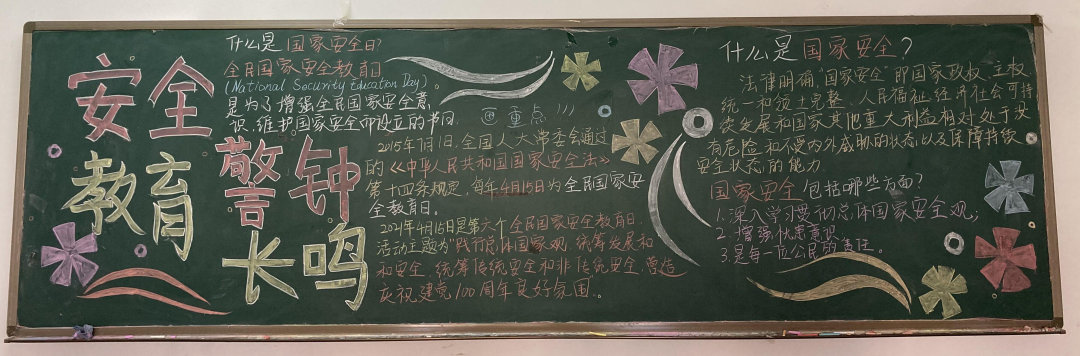 安全
教育
警钟
长鸣
什么是国家安全日?
全民国家安全教育日
(National Security Education Day)
是为了增强全民国家安全意
识、维护国家安全而设立的节日。
画重点!!!
2015年7月1日,全国人大常委会通过
的《中华人民共和国国家安全法》
第十四条规定,每年4月15日为全民国家安
全教育日。
2021年4月15日是第六个全民国家安全教育日
活动主题为“践行总体国家观,统筹发展和
和安全,统筹传统安全和非传统安全,营造
庆祝建党100周年良好氛围。
什么是国家安全?
法律明确,“国家安全”即国家政权、主权、
统一和领土完整、人民福祉、经济社会可持
续发展和国家其他重大利益相对处于没
有危险和不受内外威胁的状态以及保障持续
安全状态的能力.
国家安全包括哪些方面?
1.深入学习贯彻总体国家安全观;
2.增强忧患意识
3.是每一位公民的责任。